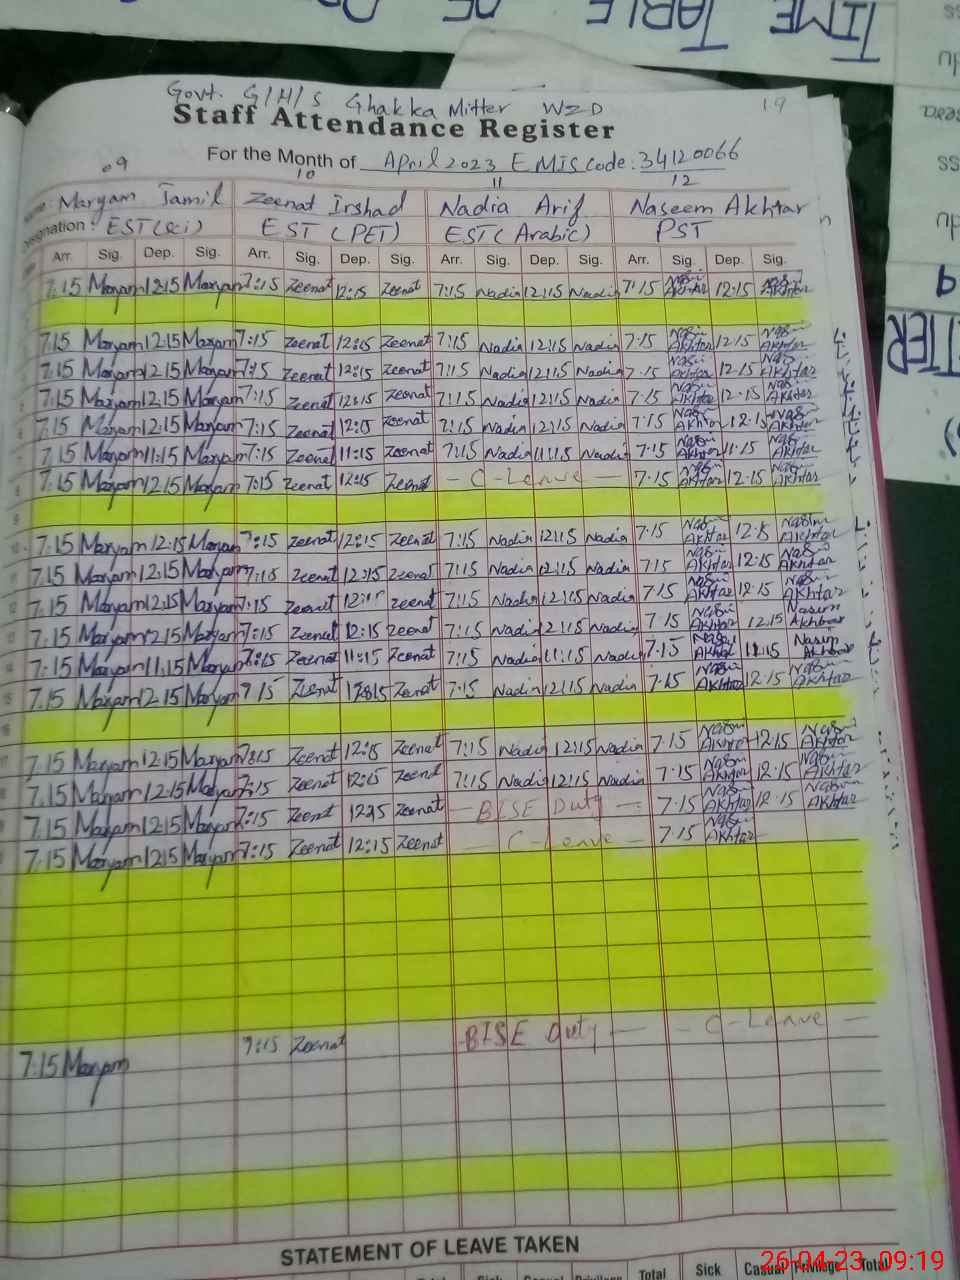 TIME TABLE OF
Govt. G/H/S Ghakka Mitter WZD
19
Staff Attendance Register
For the Month of April 2023 EMIS code: 34120066
09 10 11 12
Maryam Jamil Zeenat Irshad Nadia Arif Naseem Akhtar
Designation: EST(Sci) EST (PET) EST (Arabic) PST
Arr. Sig. Dep. Sig. Arr. Sig. Dep. Sig. Arr. Sig. Dep. Sig. Arr. Sig. Dep. Sig.
7:15 Maryam 12:15 Maryam 7:15 Zeenat 12:15 Zeenat 7:15 Nadia 12:15 Nadia 7:15 Akhtar 12:15 Akhtar
7:15 Maryam 12:15 Maryam 7:15 Zeenat 12:15 Zeenat 7:15 Nadia 12:15 Nadia 7:15 Akhtar 12:15 Akhtar
7:15 Maryam 12:15 Maryam 7:15 Zeenat 12:15 Zeenat 7:15 Nadia 12:15 Nadia 7:15 Akhtar 12:15 Akhtar
7:15 Maryam 12:15 Maryam 7:15 Zeenat 12:15 Zeenat 7:15 Nadia 12:15 Nadia 7:15 Akhtar 12:15 Akhtar
7:15 Maryam 12:15 Maryam 7:15 Zeenat 12:15 Zeenat 7:15 Nadia 12:15 Nadia 7:15 Akhtar 12:15 Akhtar
7:15 Maryam 11:15 Maryam 7:15 Zeenat 11:15 Zeenat 7:15 Nadia 11:15 Nadia 7:15 Akhtar 11:15 Akhtar
7:15 Maryam 12:15 Maryam 7:15 Zeenat 12:15 Zeenat - C-Leave - 7:15 Akhtar 12:15 Akhtar
9
10 7:15 Maryam 12:15 Maryam 7:15 Zeenat 12:15 Zeenat 7:15 Nadia 12:15 Nadia 7:15 Akhtar 12:15 Akhtar
11 7:15 Maryam 12:15 Maryam 7:15 Zeenat 12:15 Zeenat 7:15 Nadia 12:15 Nadia 7:15 Akhtar 12:15 Akhtar
12 7:15 Maryam 12:15 Maryam 7:15 Zeenat 12:15 Zeenat 7:15 Nadia 12:15 Nadia 7:15 Akhtar 12:15 Akhtar
13 7:15 Maryam 12:15 Maryam 7:15 Zeenat 12:15 Zeenat 7:15 Nadia 12:15 Nadia 7:15 Akhtar 12:15 Naseem Akhtar
14 7:15 Maryam 11:15 Maryam 7:15 Zeenat 11:15 Zeenat 7:15 Nadia 11:15 Nadia 7:15 Akhtar 11:15 Akhtar
15 7:15 Maryam 12:15 Maryam 7:15 Zeenat 12:15 Zeenat 7:15 Nadia 12:15 Nadia 7:15 Akhtar 12:15 Akhtar
16
7:15 Maryam 12:15 Maryam 7:15 Zeenat 12:15 Zeenat 7:15 Nadia 12:15 Nadia 7:15 Akhtar 12:15 Akhtar
7:15 Maryam 12:15 Maryam 7:15 Zeenat 12:15 Zeenat 7:15 Nadia 12:15 Nadia 7:15 Akhtar 12:15 Akhtar
7:15 Maryam 12:15 Maryam 7:15 Zeenat 12:15 Zeenat - BISE Duty - 7:15 Akhtar 12:15 Akhtar
7:15 Maryam 12:15 Maryam 7:15 Zeenat 12:15 Zeenat - C-Leave - 7:15 Akhtar
7:15 Maryam 7:15 Zeenat - BISE Duty - - C-Leave -
STATEMENT OF LEAVE TAKEN
Total Sick Casual Privilege Total
26-04-23 09:19